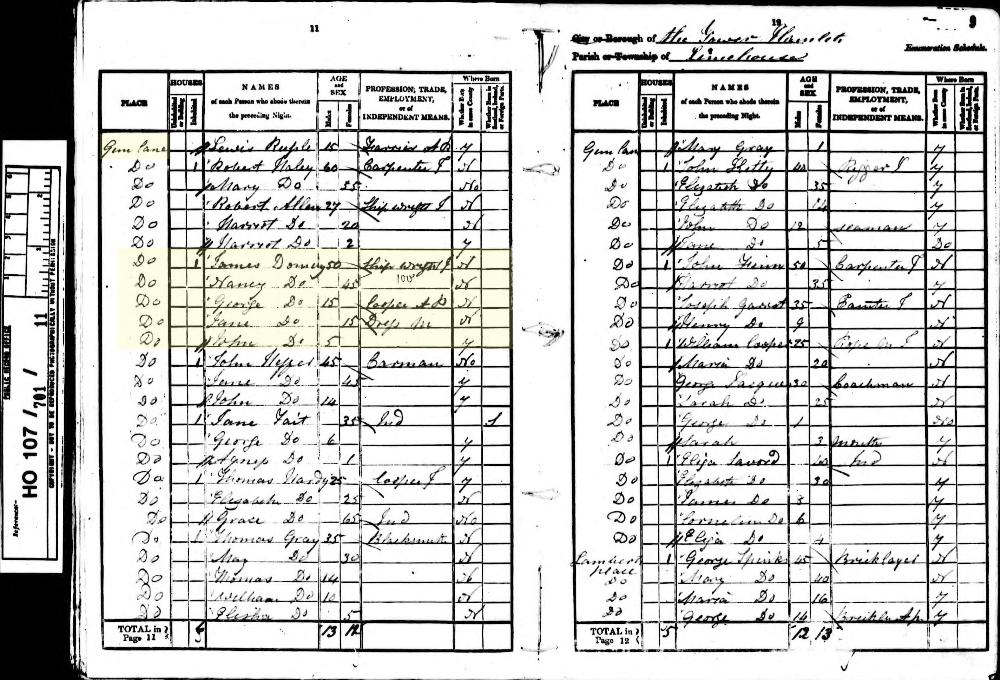 11
PLACE
HOUSES
Uninhabited or Building
Inhabited
NAMES
of each Person who abode therein
the preceding Night.
AGE
and
SEX
Males
Females
PROFESSION, TRADE,
EMPLOYMENT,
or of
INDEPENDENT MEANS.
Where Born
Whether Born in same County
Whether Born in Scotland, Ireland, or Foreign Parts.
Gun Lane Lewis 15 y
Do 1 Robert Haley 60 Carpenter J N
Do Mary Do 35 No
Do Robert Allen 27 Ship wright J N
Do Harriot Do 20 N
Do Harriot Do 2 y
Do 1 James 50 Ship wright J N
Do Nancy Do 45 N
Do George Do 15 Cooper Ap N
Do Jane Do 15 Dress M N
Do John Do 5 y
Do 1 John 45 Carman No
Do Jane Do 45 y
Do John Do 14 y
Do 1 Jane Tait 35 Ind S
Do George Do 6 y
Do Agness Do 1 y
Do 1 Thomas Hardy 25 Cooper J y
Do Elizabeth Do 25 N
Do Grace Do 65 Ind No
Do 1 Thomas Gray 35 N
Do May Do 30 N
Do Thomas Do 14 N
Do William Do 10 N
Do Do 5 N
TOTAL in
Page 11 6 13 12
12
9
City or Borough of the Tower Hamlets
Parish or Township of Limehouse
Enumeration Schedule.
PLACE
HOUSES
Uninhabited or Building
Inhabited
NAMES
of each Person who abode therein
the preceding Night.
AGE
and
SEX
Males
Females
PROFESSION, TRADE,
EMPLOYMENT,
or of
INDEPENDENT MEANS.
Where Born
Whether Born in same County
Whether Born in Scotland, Ireland, or Foreign Parts.
Gun Lane Mary Gray 1 y
Do 1 John 40 Rigger J y
Do Elizabeth Do 35 y
Do Elizabeth Do 14 y
Do John Do 12 seaman y
Do Jane Do 5 Do
Do 1 John 50 Carpenter J N
Do Harriot Do 35 y
Do Joseph Garrat 35 Painter J N
Do Henry Do 9 N
Do 1 William Cooper 25 Rope M J N
Do Maria Do 20 N
Do George 30 Coachman N
Do Sarah Do 25 N
Do George Do 1 No
Do Sarah 3 month y
Do 1 Eliza 40 Ind N
Do Elizabeth Do 30 y
Do James Do 8 y
Do Cornelius Do 6 y
Do Eliza Do 4 y
Lambert place 1 George Spinks 45 Bricklayer N
Do Mary Do 40 N
Do Maria Do 16 y
Do George Do 14 Bricklr Ap y
TOTAL in
Page 12 5 12 13
PUBLIC RECORD OFFICE
Reference:-
HO 107 / 701 / 11
COPYRIGHT - NOT TO BE REPRODUCED PHOTOGRAPHICALLY WITHOUT PERMISSION